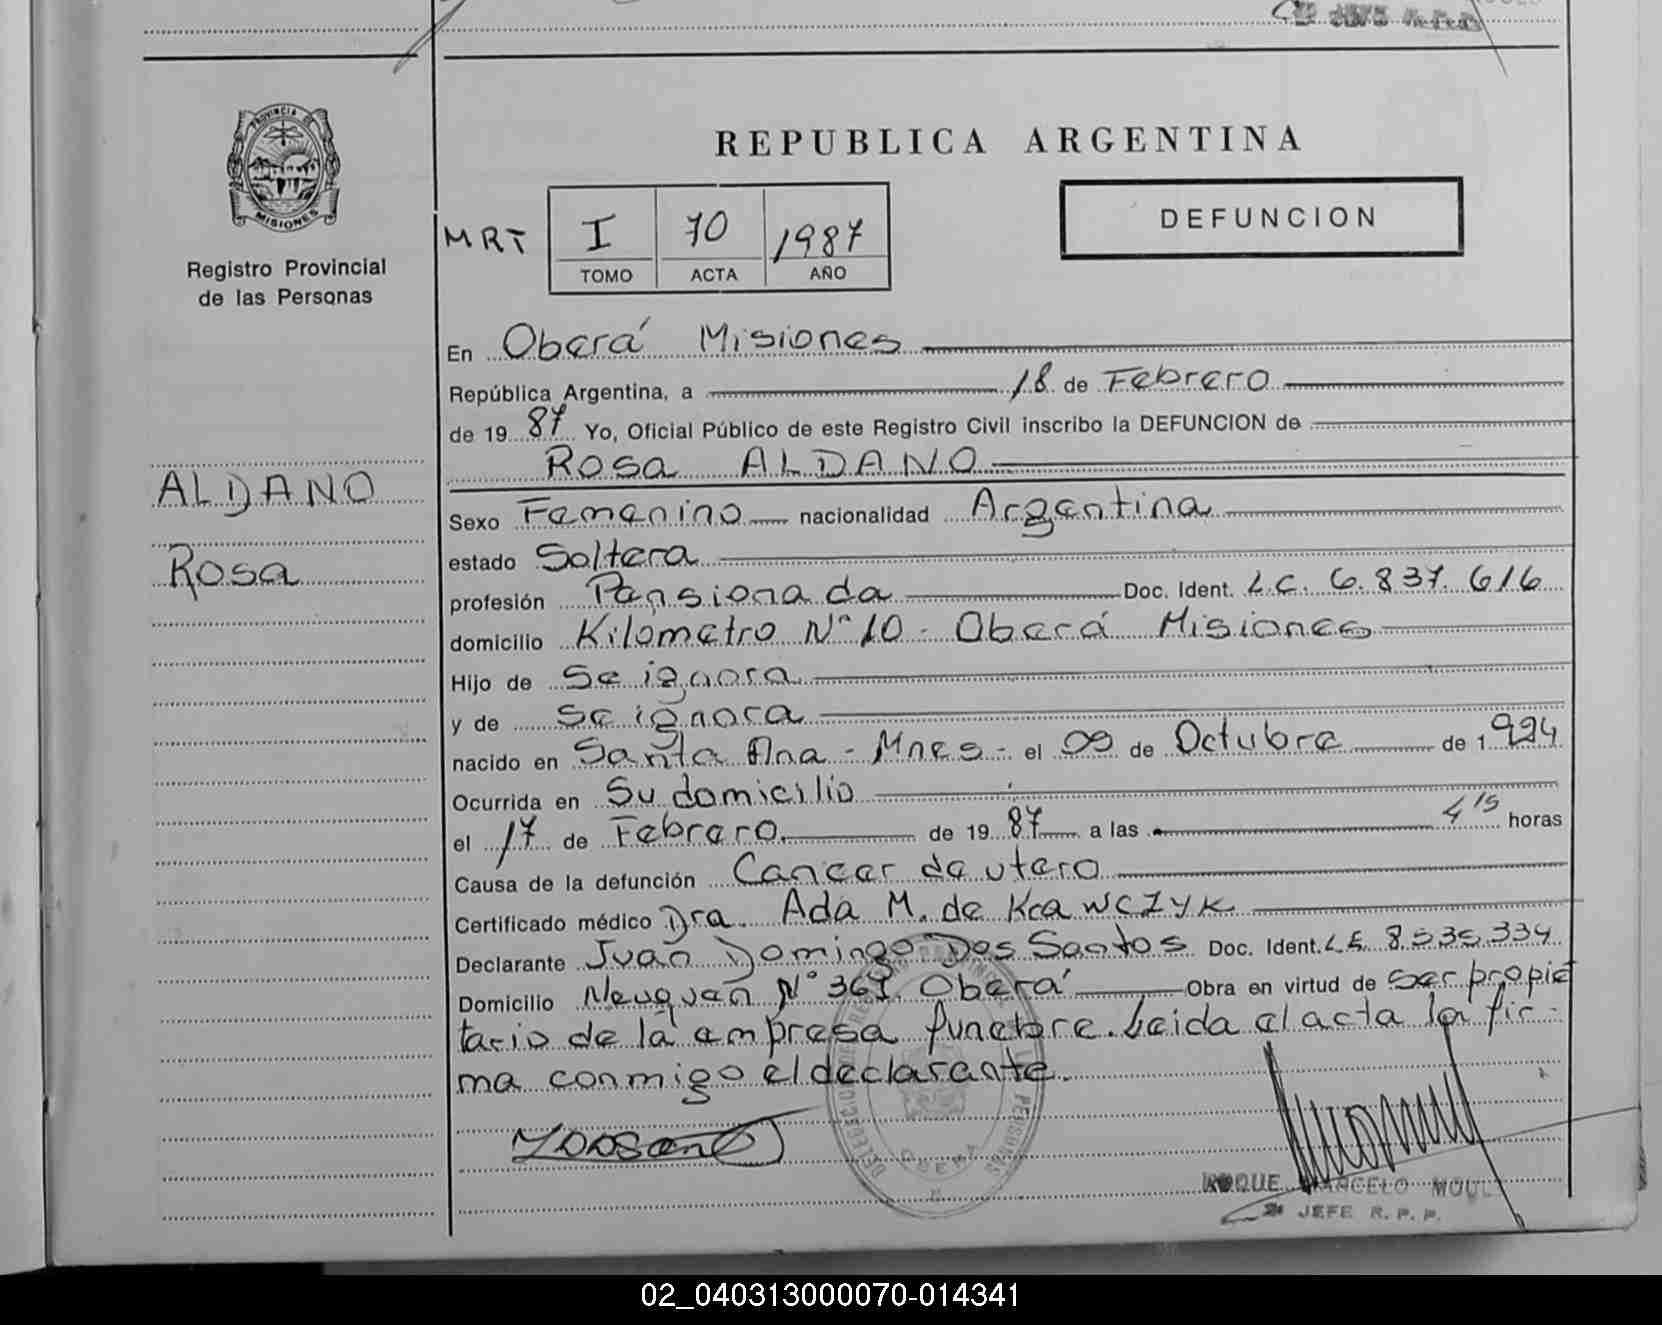 PROVINCIA DE
MISIONES
Registro Provincial
de las Personas
ALDANO
Rosa
REPUBLICA ARGENTINA
MRT I 70 1987
TOMO ACTA AÑO
DEFUNCION
En Oberá Misiones
República Argentina, a 18 de Febrero
de 19 87 Yo, Oficial Público de este Registro Civil inscribo la DEFUNCION de
Rosa ALDANO
Sexo Femenino nacionalidad Argentina
estado Soltera
profesión Pensionada Doc. Ident. L.C. 6.837.616
domicilio Kilometro N° 10 - Oberá Misiones
Hijo de Se ignora
y de Se ignora
nacido en Santa Ana - Mnes - el 09 de Octubre de 1924
Ocurrida en Su domicilio
el 17 de Febrero de 19 87 a las 4 15 horas
Causa de la defunción Cancer de utero
Certificado médico Dra. Ada M. de KrawCZYK
Declarante Juan Domingo Dos Santos Doc. Ident. L E 8.535.334
Domicilio Neuquén N° 367 Oberá Obra en virtud de ser propie
tario de la empresa funebre. Leida el acta la fir-
ma conmigo el declarante.
ROQUE MARCELO
JEFE R. P. P.
02_040313000070-014341